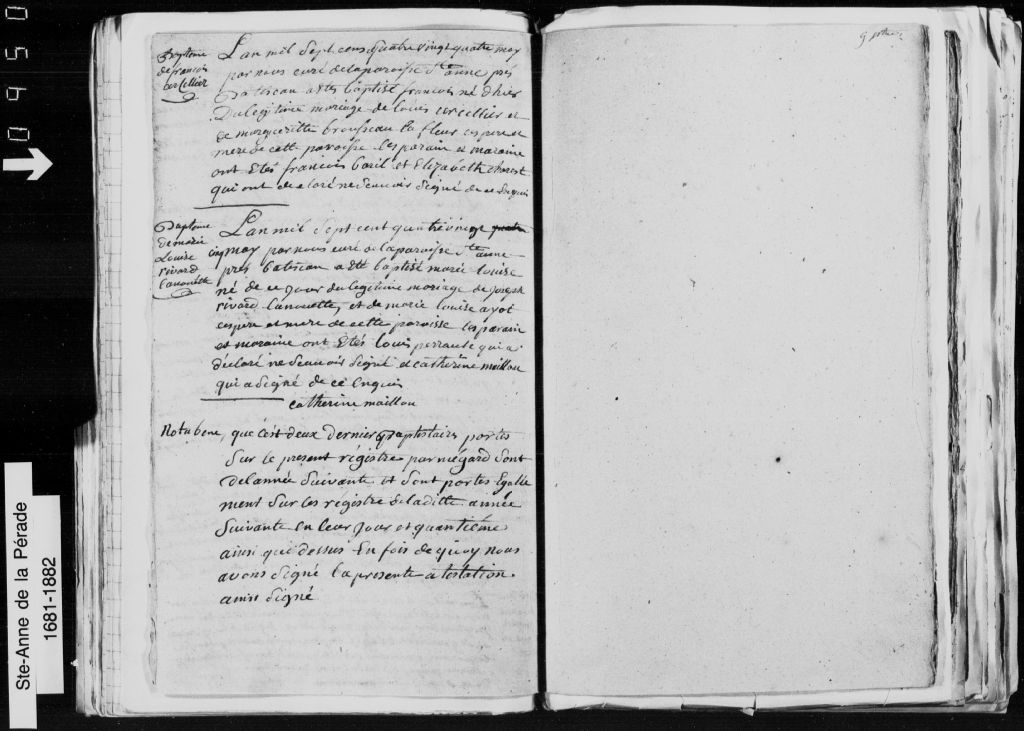 Baptême
de francois
cersellier
L'an mil Sept cens Quatre vingt quatre may
par nous curé de la paroisse Ste anne prés
Batescan a etes baptisé francois né d'hier
Du légitime mariage de Louis cersellier et
de margueritte brousseau la fleur ces pere et
mere de cette paroisse les parain et maraine
ont Etés francois baril et Elizabeth charest
qui ont declaré ne Scauoir Signé de ce Enquis
Bapteme
de marie
Louise
rivard
Lanouette
L'an mil Sept cent quatre vingt
cinq may par nous curé de la paroisse Ste anne
prés batescan a eté baptisé marie Louise
né de ce Jour du legitime mariage de Joseph
rivard Lanouette, et de marie Louise ayot
ces pere et mere de cette paroisse les parain
et maraine ont Etés Louis perrault qui a
déclaré ne Scauoir Signé et catherine maillou
qui a Signé de ce Enquis
catherine maillou
Nota bene, que cest deux dernier Baptistaires portés
Sur le present régistre par mégard Sont
de lannée Suivante et Sont portés Egalle
ment Sur les régistre de laditte année
Suivante en leur Jour et quantiéme
ainsi que dessus En fois de quoy nous
avons Signé la presente atestation.
ainsi Signé